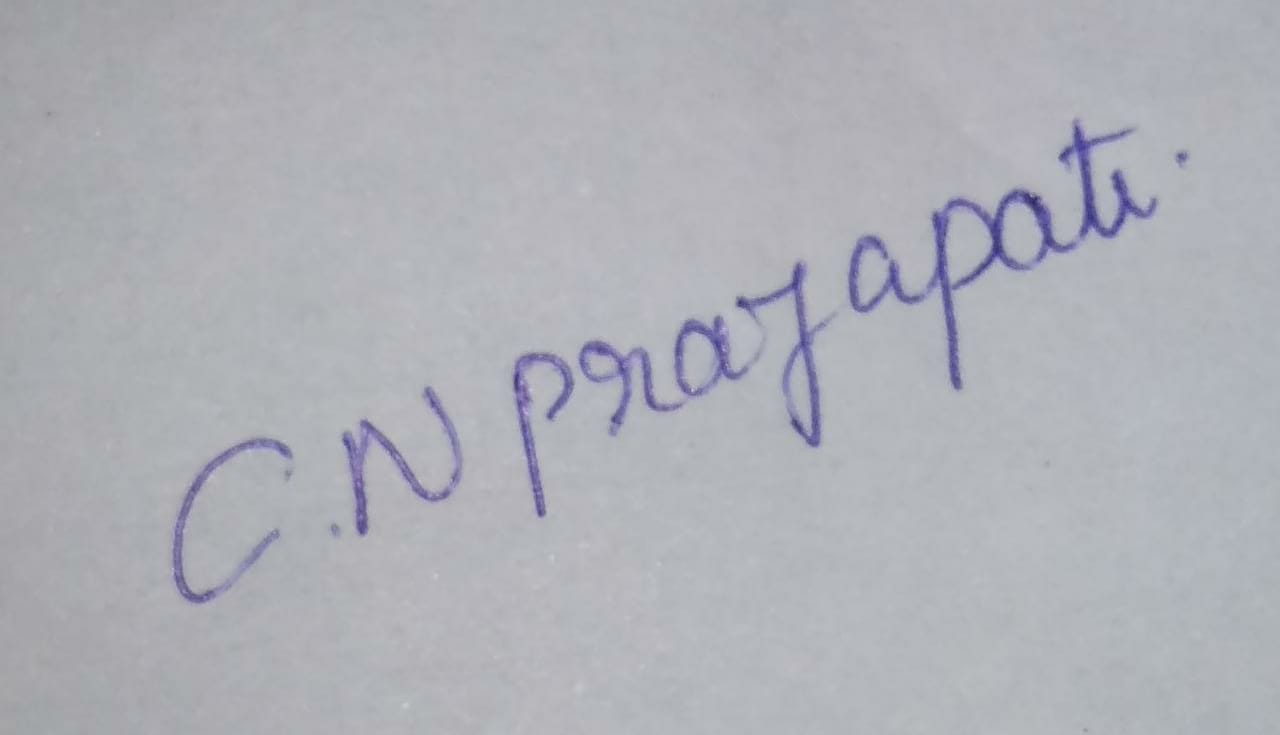 C.N prajapati.